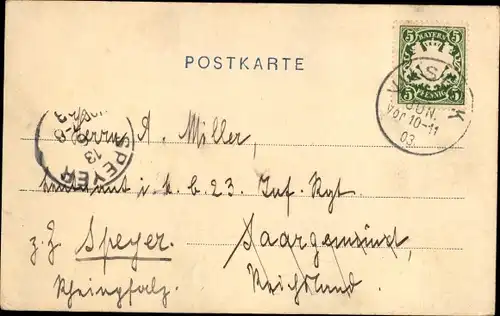 POSTKARTE
5 BAYERN 5
5 PFENNIG 5
JUN.
Vor 10-11
03
SPEYER
13
Herrn A. Miller,
Leutnant i. k. b. 23. Inf. Rgt
z. Z. Speyer. Saargemünd,
Rheinpfalz. Reichsland.